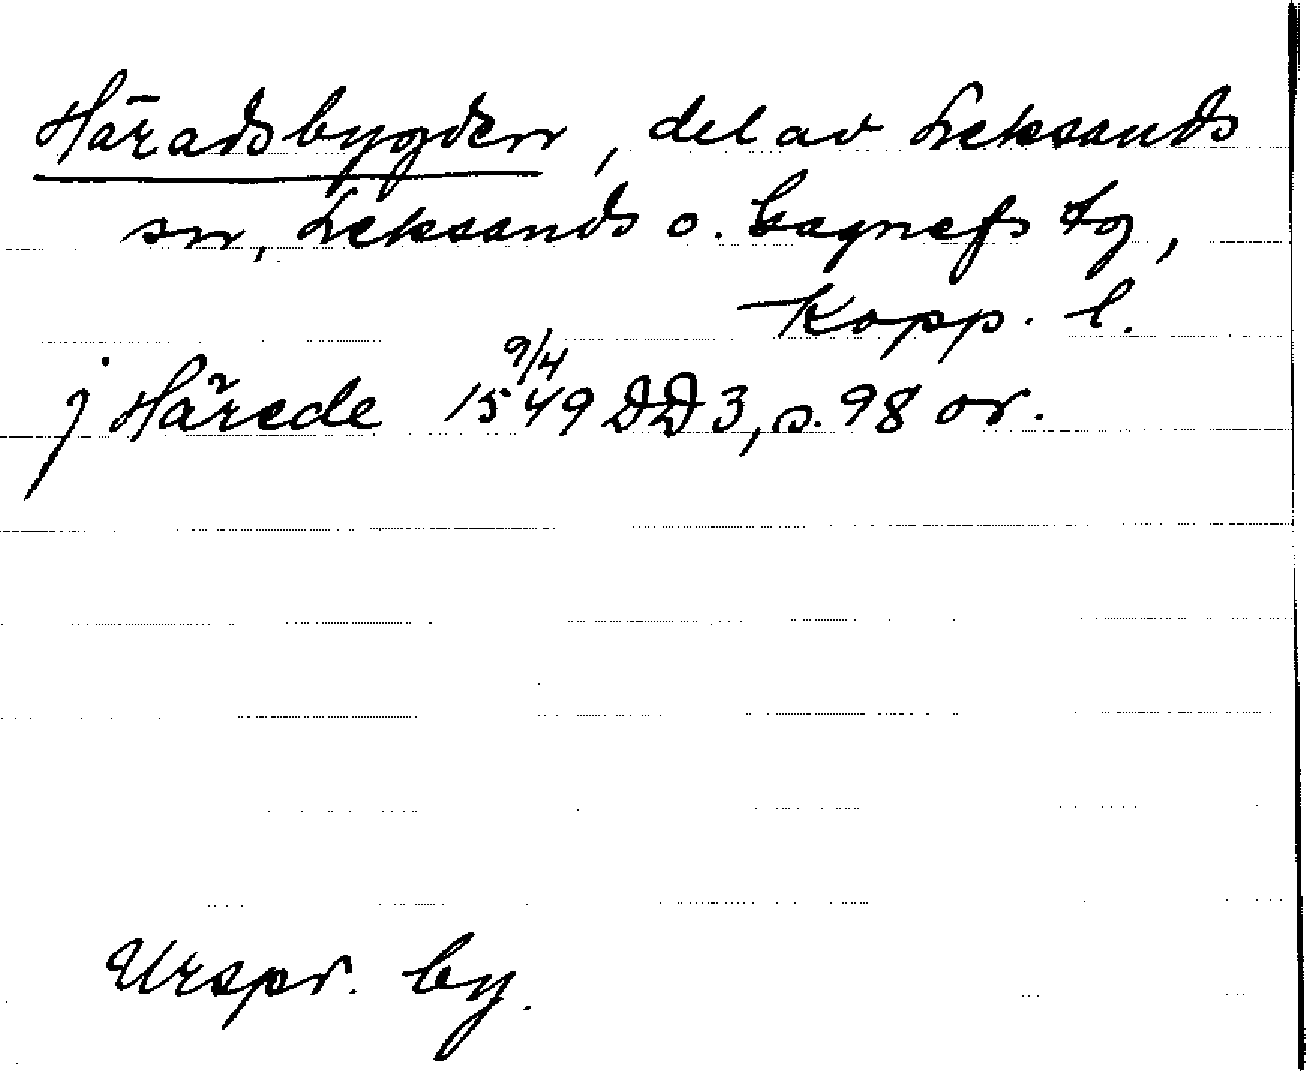 Häradsbygden, del av Leksands
sn, Leksands o. Gagnefs tg,
Kopp. l.
j Härede 1549 9/4 DD 3, s. 98 or.
Urspr. by.